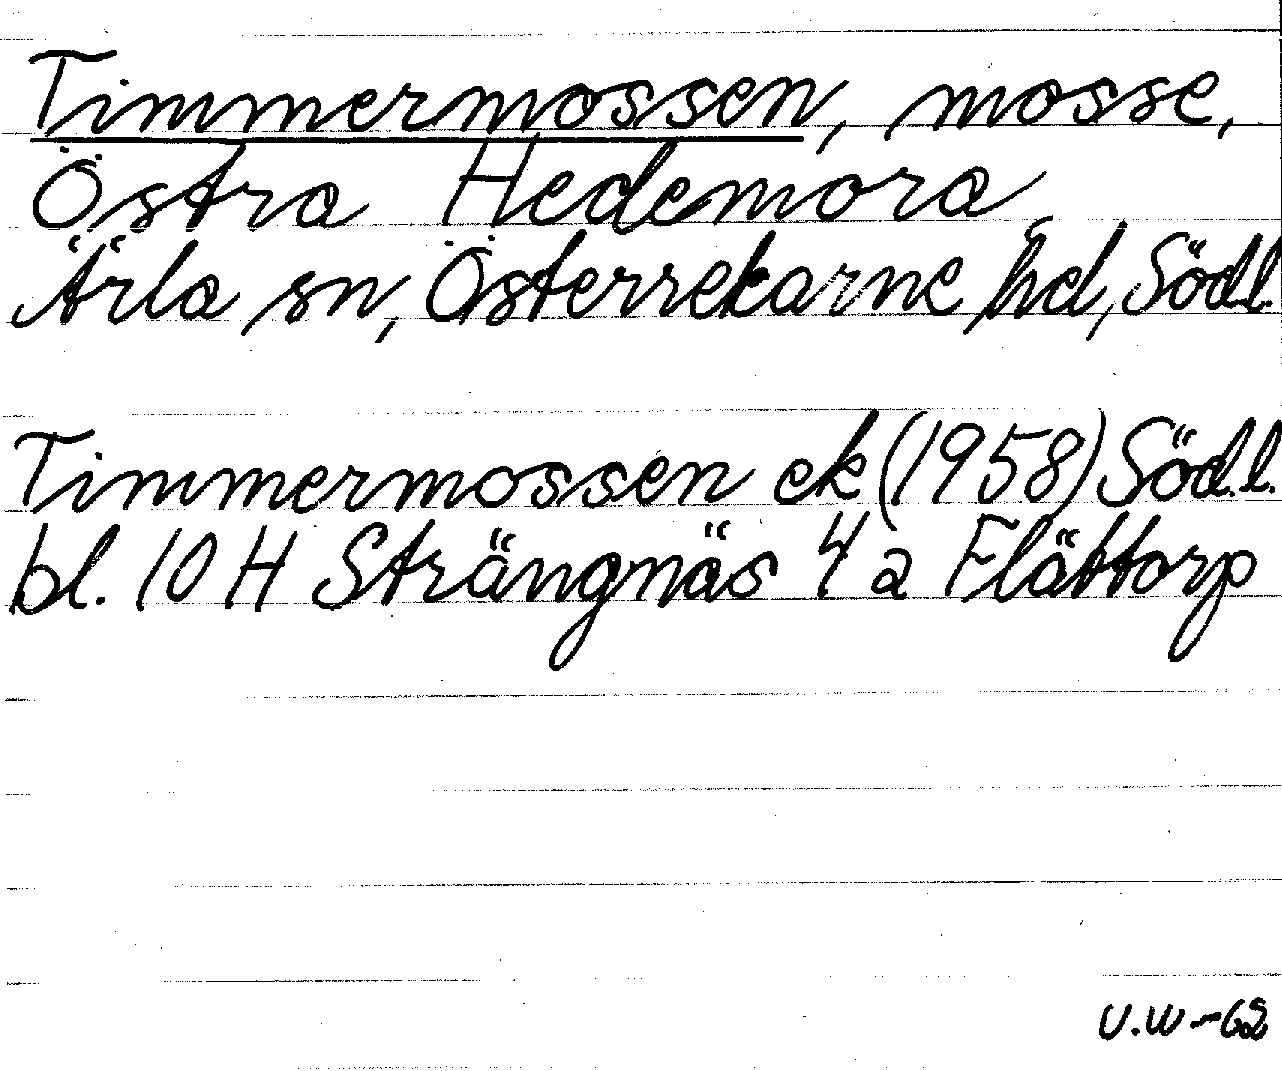 Timmermossen, mosse,
Östra Hedemora,
Ärla sn, Österrekarne hd, Södl.
Timmermossen ek (1958) Söd.l.
bl. 10 H Strängnäs 4 a Flättorp
U.W-62